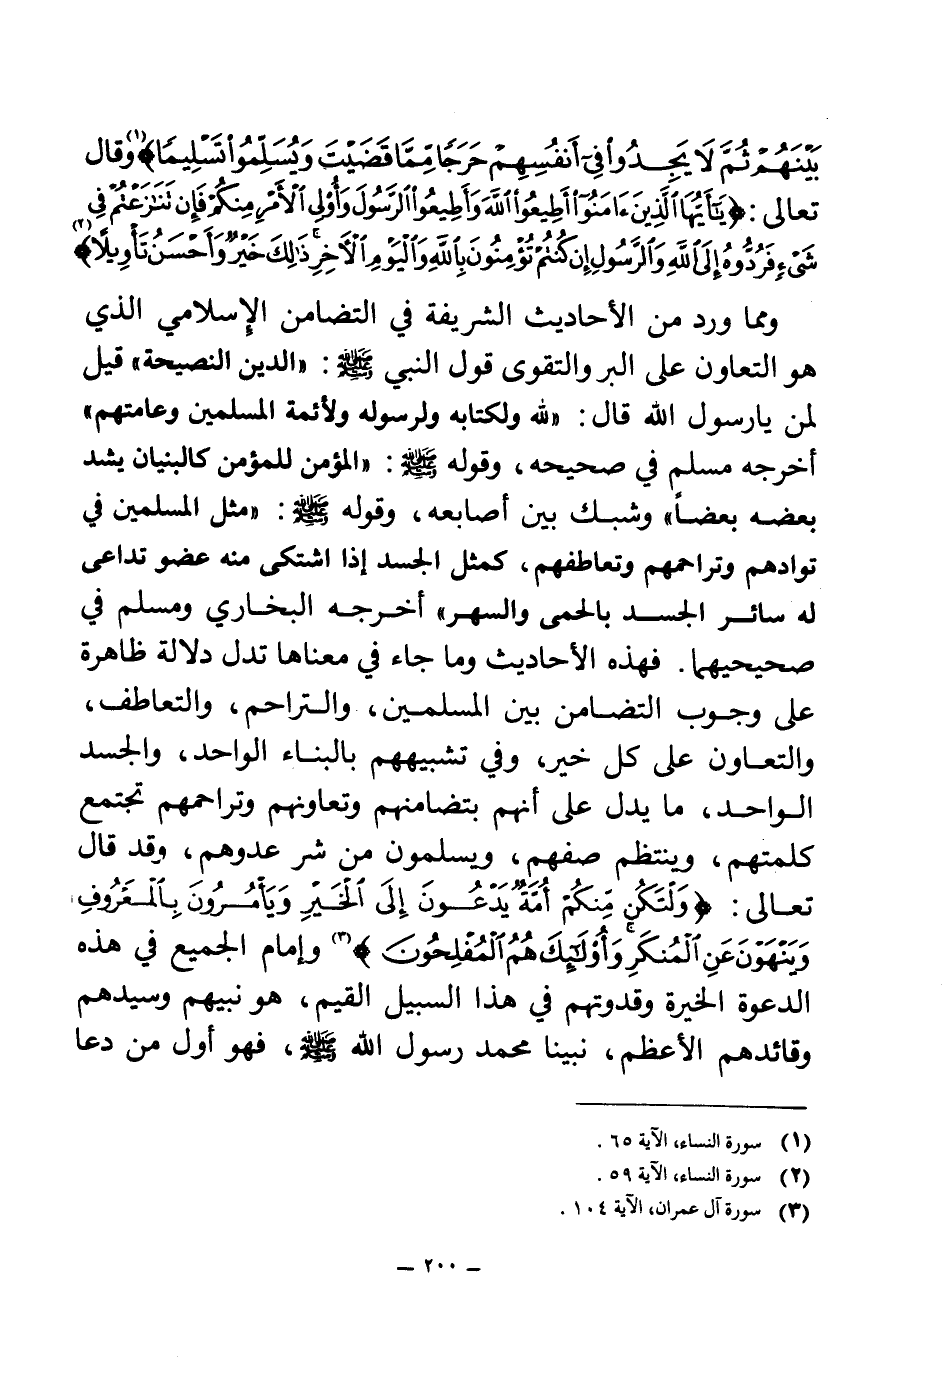 بَيْنَهُمْ ثُمَّ لَا يَجِدُوا۟ فِىٓ أَنفُسِهِمْ حَرَجًا مِّمَّا قَضَيْتَ وَيُسَلِّمُوا۟ تَسْلِيمًا﴾(١) وقال
تعالى : ﴿يَٰٓأَيُّهَا ٱلَّذِينَ ءَامَنُوٓا۟ أَطِيعُوا۟ ٱللَّهَ وَأَطِيعُوا۟ ٱلرَّسُولَ وَأُو۟لِى ٱلْأَمْرِ مِنكُمْ فَإِن تَنَٰزَعْتُمْ فِى
شَىْءٍ فَرُدُّوهُ إِلَى ٱللَّهِ وَٱلرَّسُولِ إِن كُنتُمْ تُؤْمِنُونَ بِٱللَّهِ وَٱلْيَوْمِ ٱلْأَخِرِ ۚ ذَٰلِكَ خَيْرٌ وَأَحْسَنُ تَأْوِيلًا﴾(٢)
ومما ورد من الأحاديث الشريفة في التضامن الإسلامي الذي
هو التعاون على البر والتقوى قول النبي ﷺ : «الدين النصيحة» قيل
لمن يارسول الله قال : «لله ولكتابه ولرسوله ولأئمة المسلمين وعامتهم»
أخرجه مسلم في صحيحه ، وقوله ﷺ : «المؤمن للمؤمن كالبنيان يشد
بعضه بعضاً» وشبك بين أصابعه ، وقوله ﷺ : «مثل المسلمين في
توادهم وتراحمهم وتعاطفهم ، كمثل الجسد إذا اشتكى منه عضو تداعى
له سائر الجسد بالحمى والسهر» أخرجه البخاري ومسلم في
صحيحيهما . فهذه الأحاديث وما جاء في معناها تدل دلالة ظاهرة
على وجوب التضامن بين المسلمين ، والتراحم ، والتعاطف ،
والتعاون على كل خير، وفي تشبيههم بالبناء الواحد ، والجسد
الواحد ، ما يدل على أنهم بتضامنهم وتعاونهم وتراحمهم تجتمع
كلمتهم ، وينتظم صفهم ، ويسلمون من شر عدوهم ، وقد قال
تعالى : ﴿وَلْتَكُن مِّنكُمْ أُمَّةٌ يَدْعُونَ إِلَى ٱلْخَيْرِ وَيَأْمُرُونَ بِٱلْمَعْرُوفِ
وَيَنْهَوْنَ عَنِ ٱلْمُنكَرِ ۚ وَأُو۟لَٰٓئِكَ هُمُ ٱلْمُفْلِحُونَ ﴾(٣) وإمام الجميع في هذه
الدعوة الخيرة وقدوتهم في هذا السبيل القيم ، هو نبيهم وسيدهم
وقائدهم الأعظم ، نبينا محمد رسول الله ﷺ ، فهو أول من دعا
(١) سورة النساء، الآية ٦٥ .
(٢) سورة النساء، الآية ٥٩ .
(٣) سورة آل عمران، الآية ١٠٤ .
– ٢٠٠ –